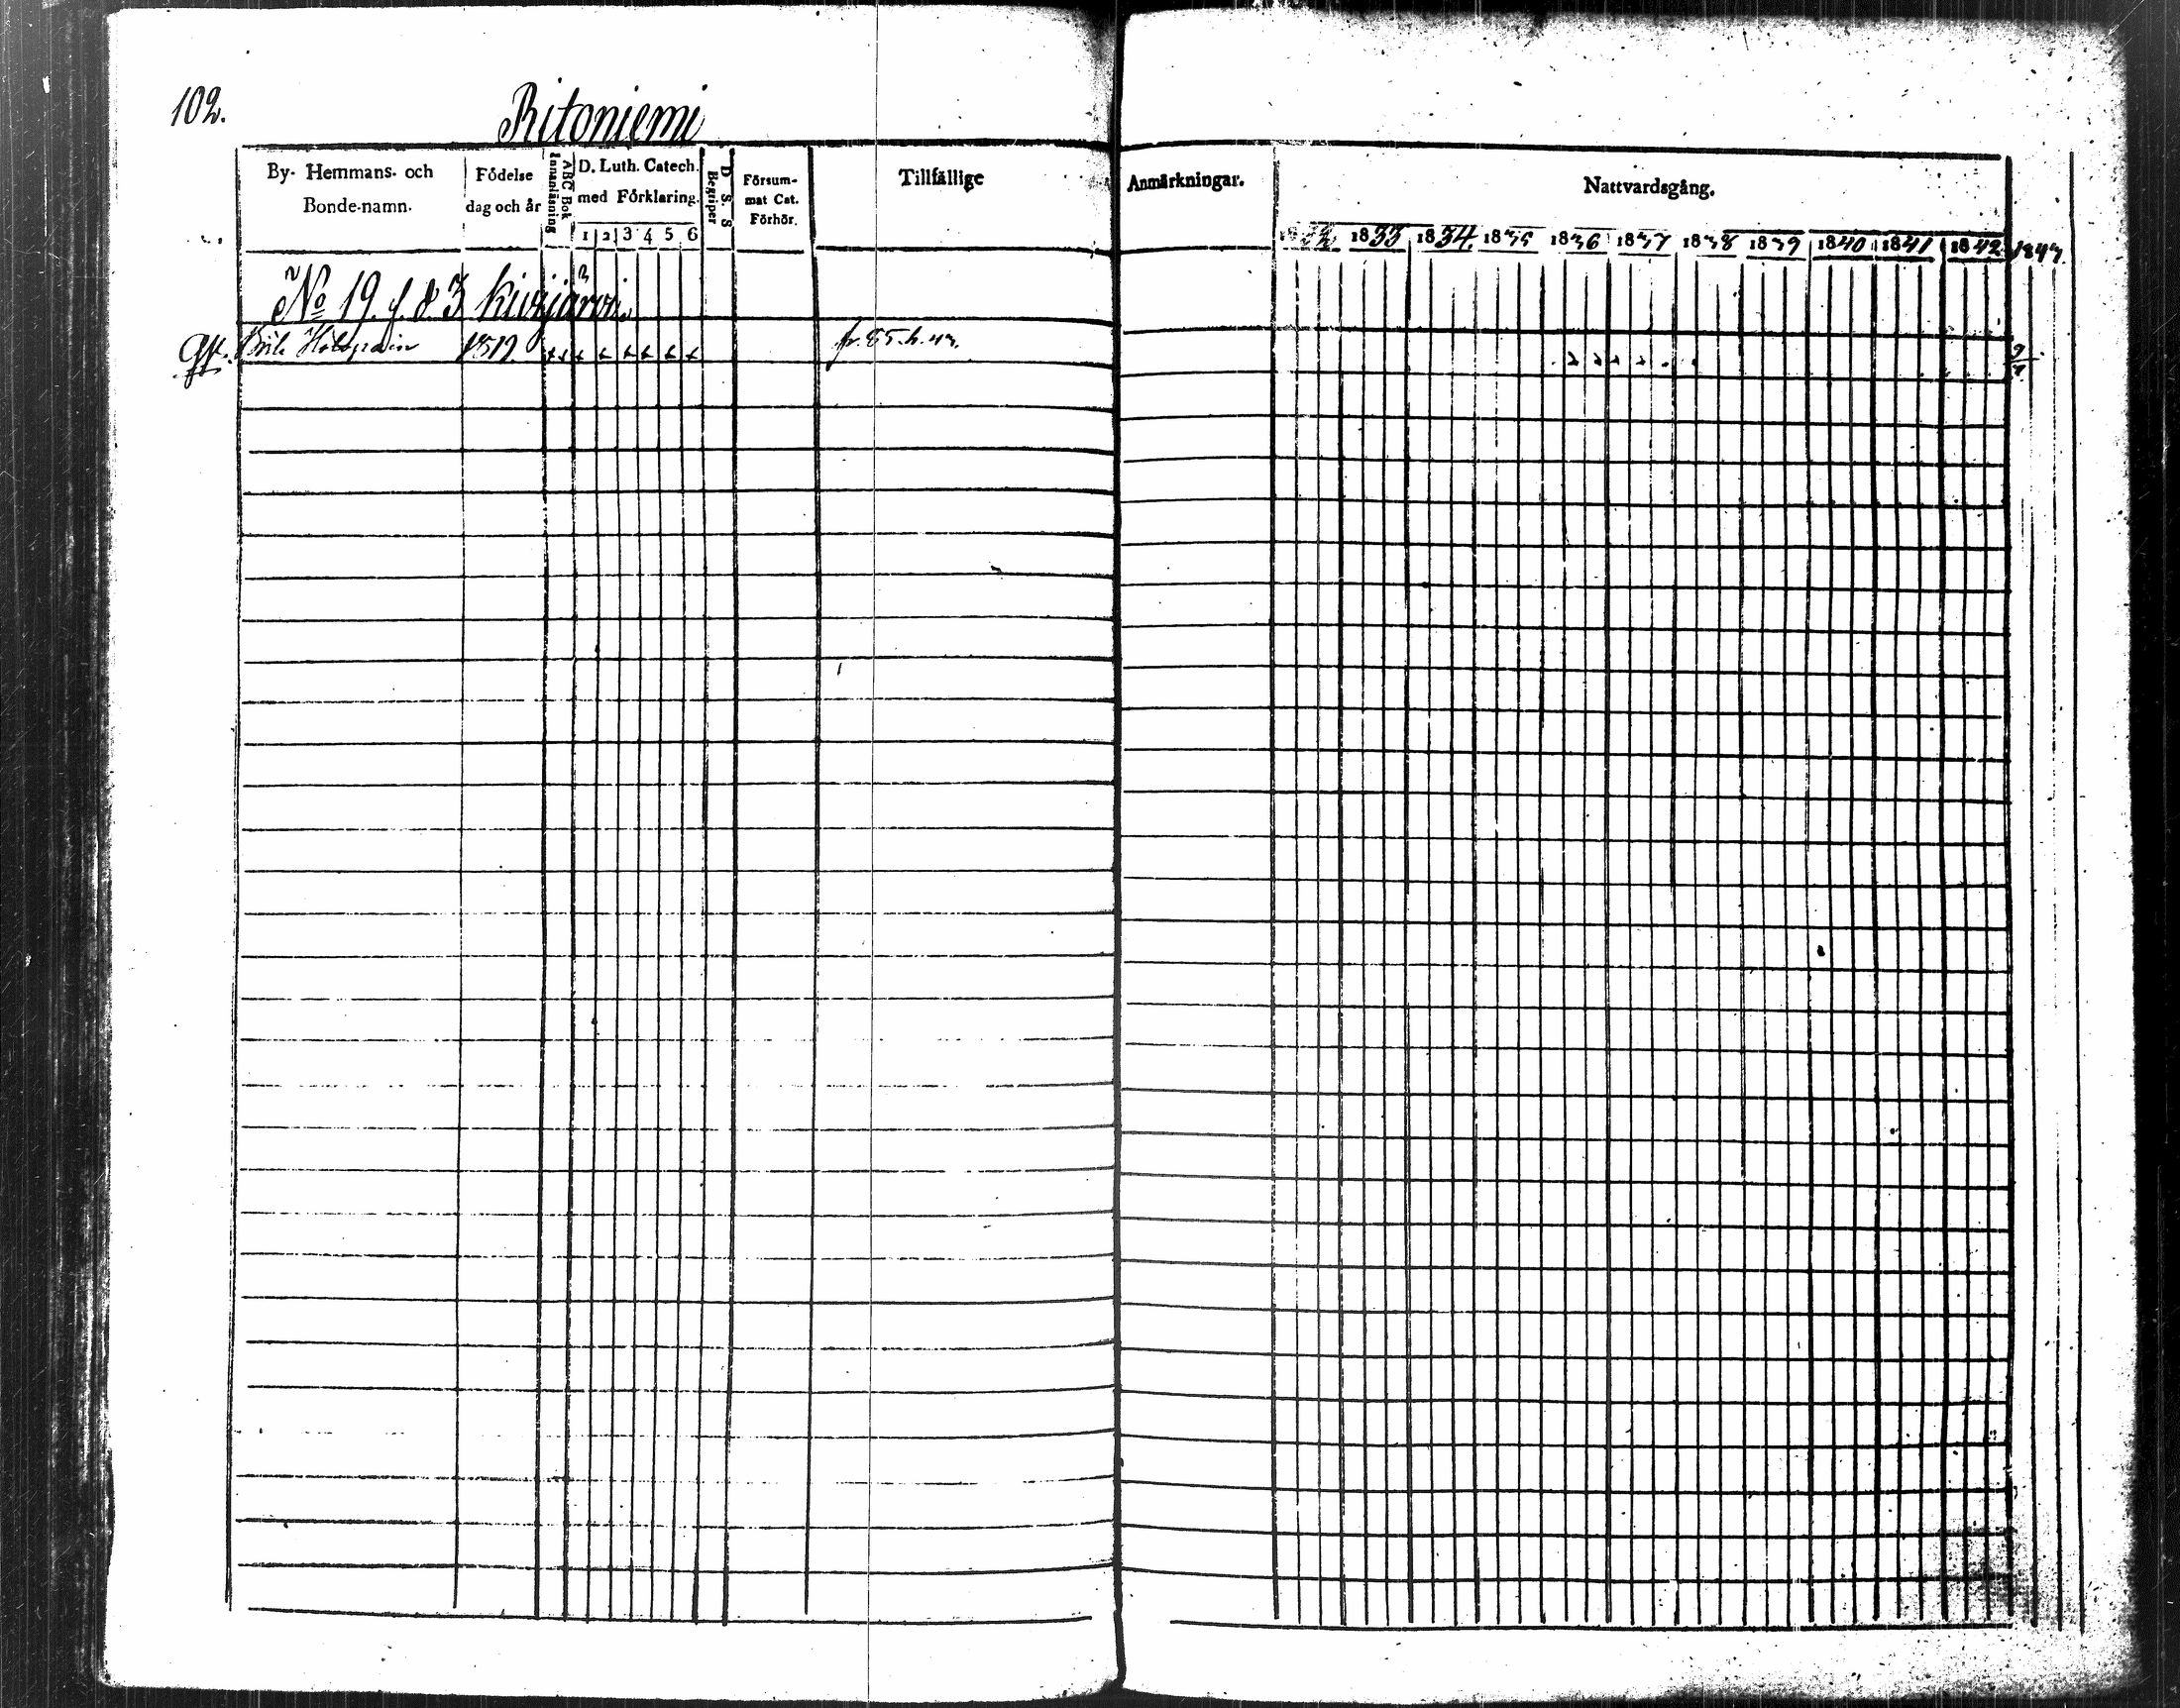 102.
Ritoniemi
By- Hemmans- och
Bonde-namn.
Födelse
dag och år
Innanläsning
ABC Bok
D. Luth. Catech.
med Förklaring.
1 2 3 4 5 6
D. S. S
Begriper
Försum-
mat Cat.
Förhör.
Tillfällige
Anmärkningar.
Nattvardsgång.
1832 1833 1834 1835 1836 1837 1838 1839 1840 1841 1842 1843
No 19. Kivijärvi